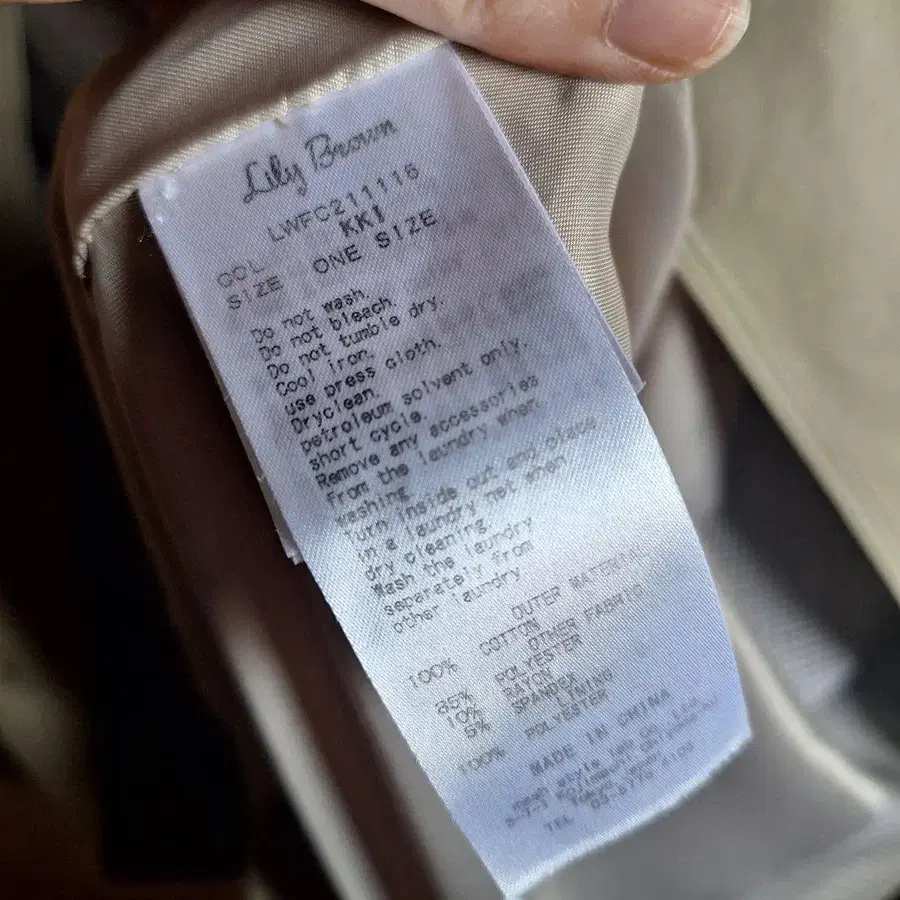 Lily Brown
LWFC211116
COL KKI
SIZE ONE SIZE
Do not wash.
Do not bleach.
Do not tumble dry.
Cool iron.
use press cloth.
Dryclean.
petroleum solvent only.
short cycle.
Remove any accessories
from the laundry when
washing.
Turn inside out and place
in a laundry net when
dry cleaning.
Wash the laundry
separately from
other laundry
OUTER MATERIAL
100% COTTON
OTHER FABRIC
85% POLYESTER
10% RAYON
5% SPANDEX
LINING
100% POLYESTER
MADE IN CHINA
mash style lab Co.,Ltd.
TEL 03